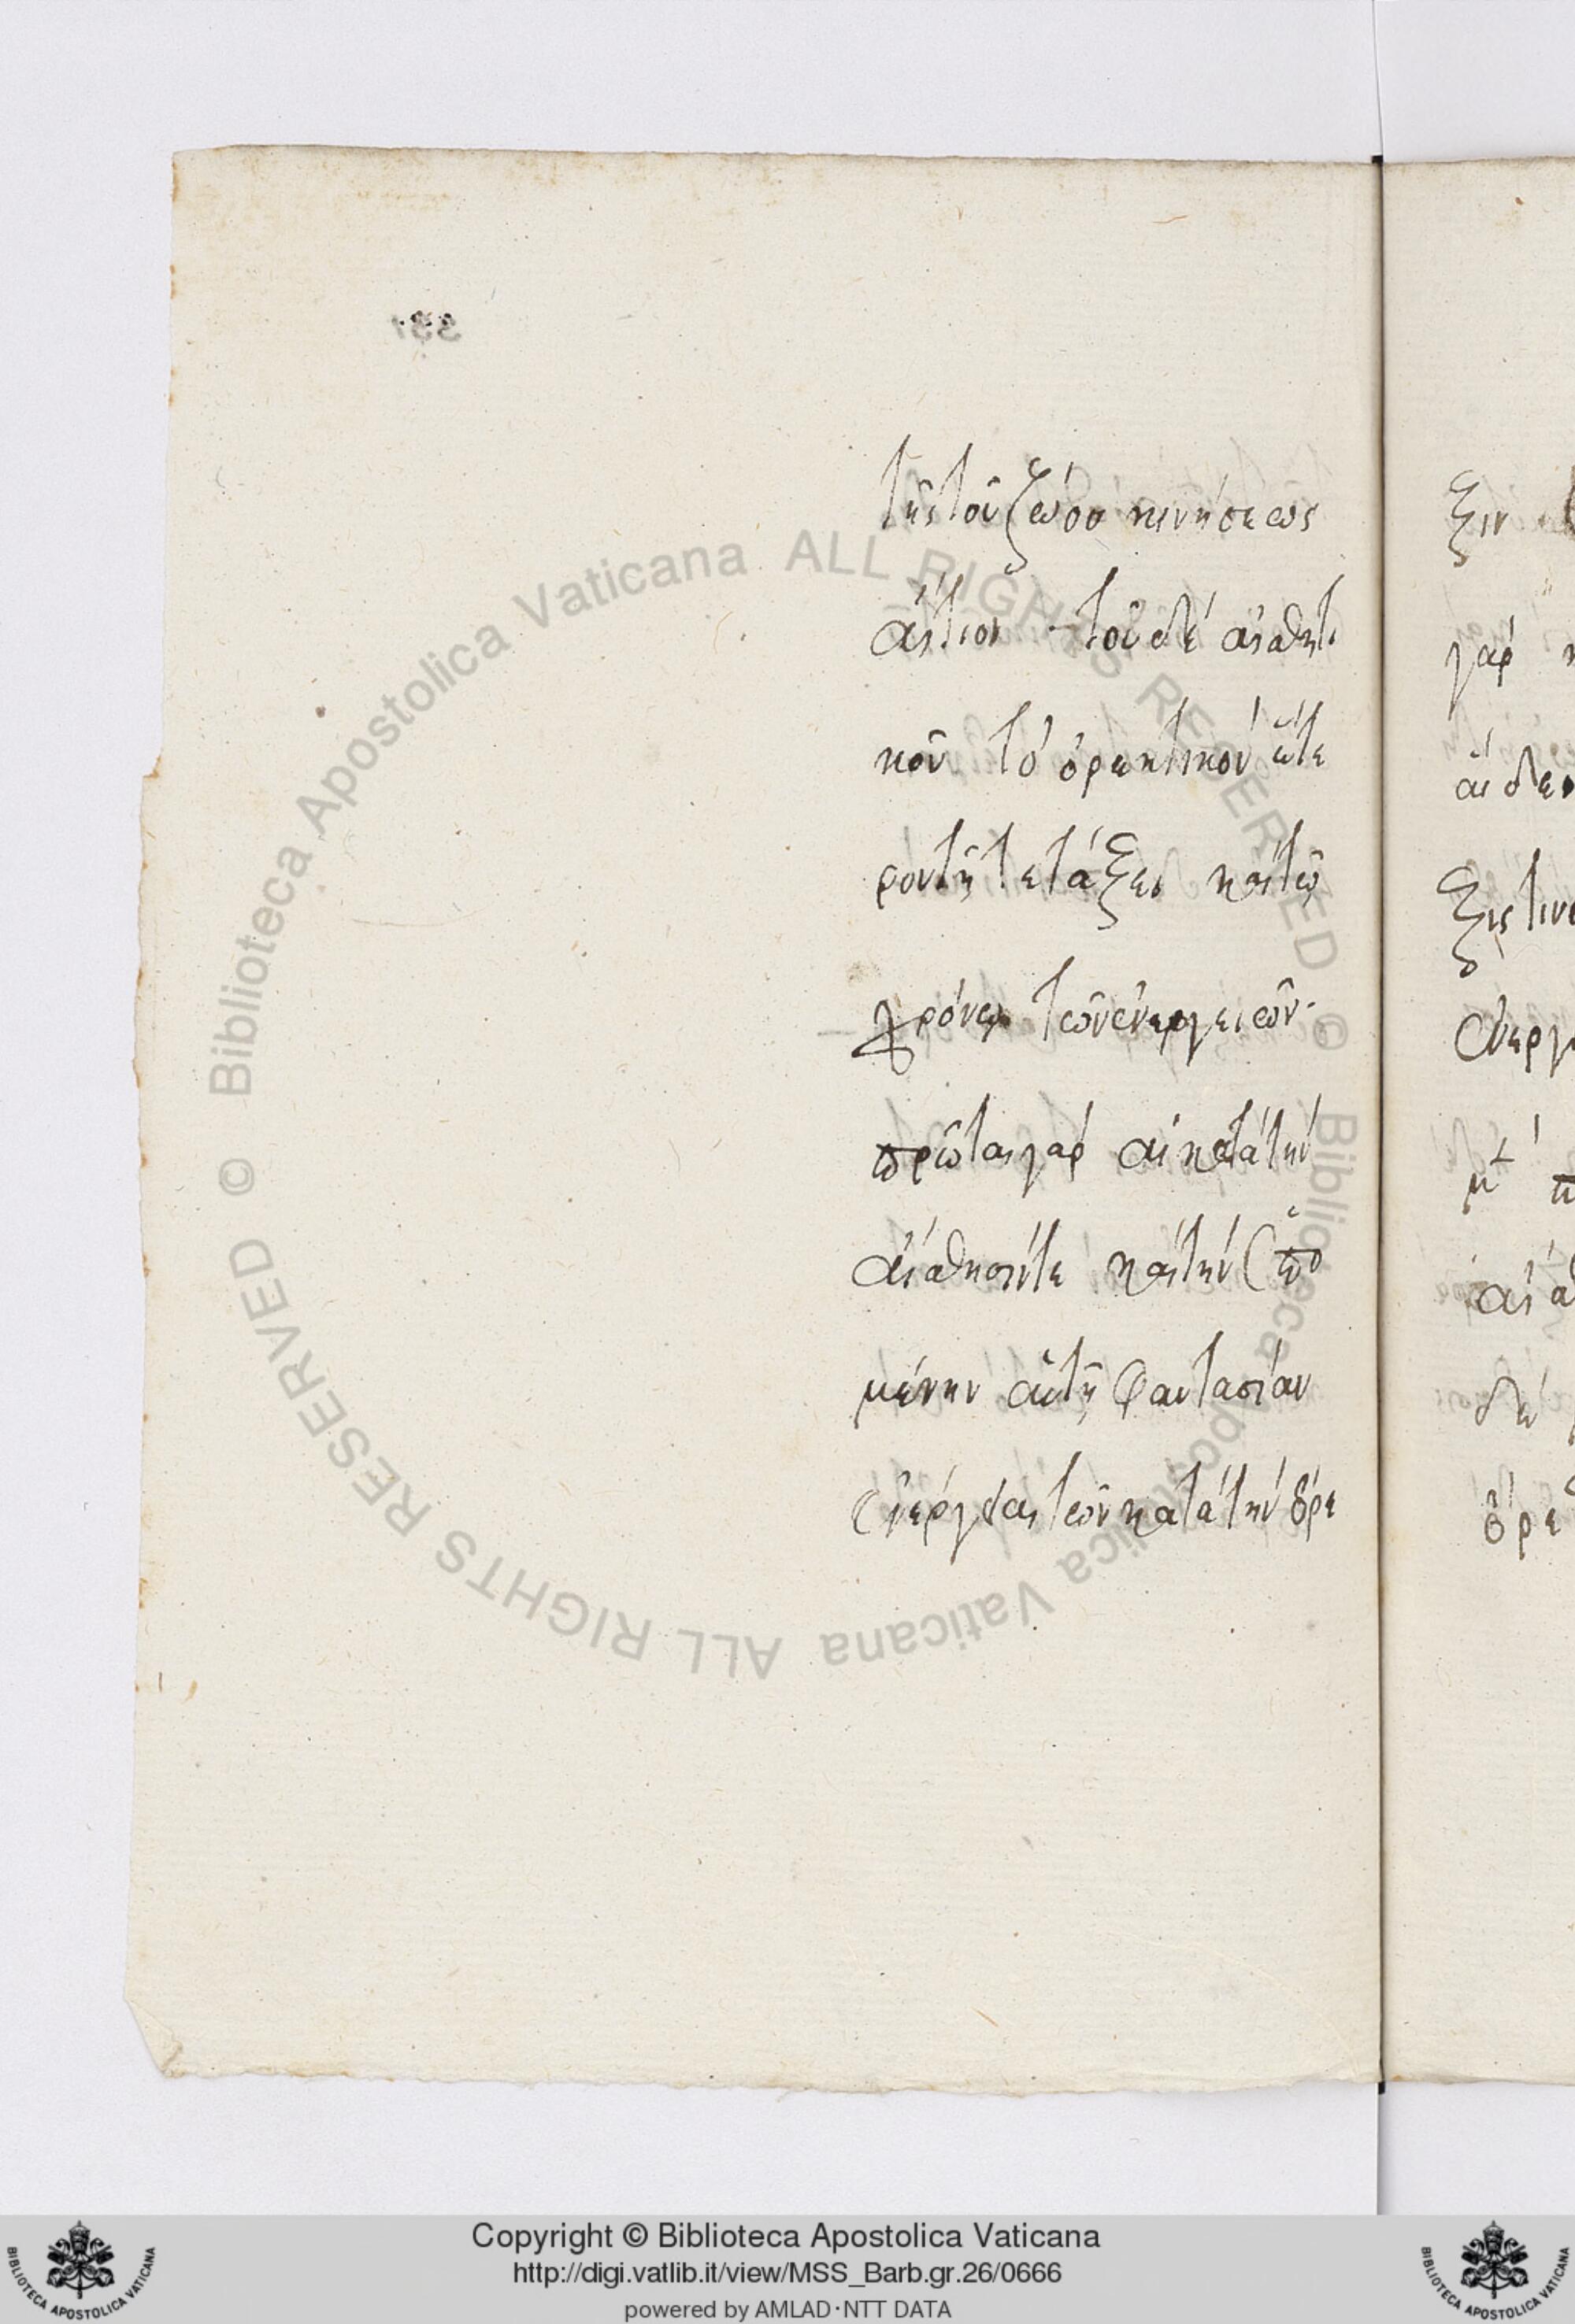 τῆς τοῦ ζώου κινήσεως
αἴτιον - τοῦ δὲ αἰσθητι
κοῦ τὸ ὀρεκτικὸν ὕστε
ρον τῇ τε τάξει καὶ τῷ
χρόνῳ τῶν ἐνεργειῶν·
πρῶται γὰρ αἱ κατὰ τὴν
αἴσθησίν τε καὶ τὴν ἑπο
μένην αὐτῇ φαντασίαν
ἐνέργειαι τῶν κατὰ τὴν ὄρε
ξιν
γὰρ
αἱ δε
ξις τιν
ἐνεργ
δὲ
ὄρε
331
© Biblioteca Apostolica Vaticana ALL RIGHTS RESERVED © Biblioteca Apostolica Vaticana ALL RIGHTS RESERVED
Copyright © Biblioteca Apostolica Vaticana
http://digi.vatlib.it/view/MSS_Barb.gr.26/0666
powered by AMLAD·NTT DATA
BIBLIOTECA APOSTOLICA VATICANA
BIBLIOTECA APOSTOLICA VATICANA